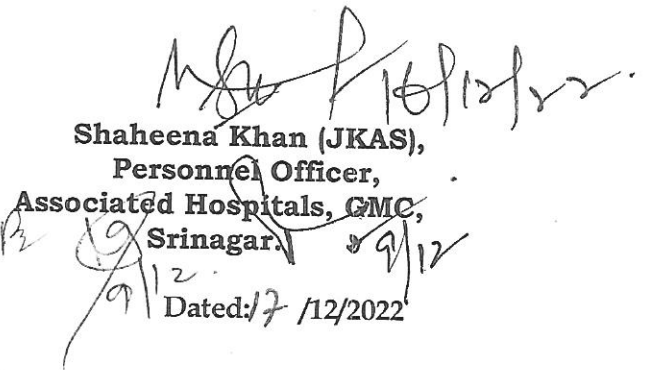 16/12/22.
Shaheena Khan (JKAS),
Personnel Officer,
Associated Hospitals, GMC,
Srinagar.
9/12
9/12.
Dated:17 /12/2022